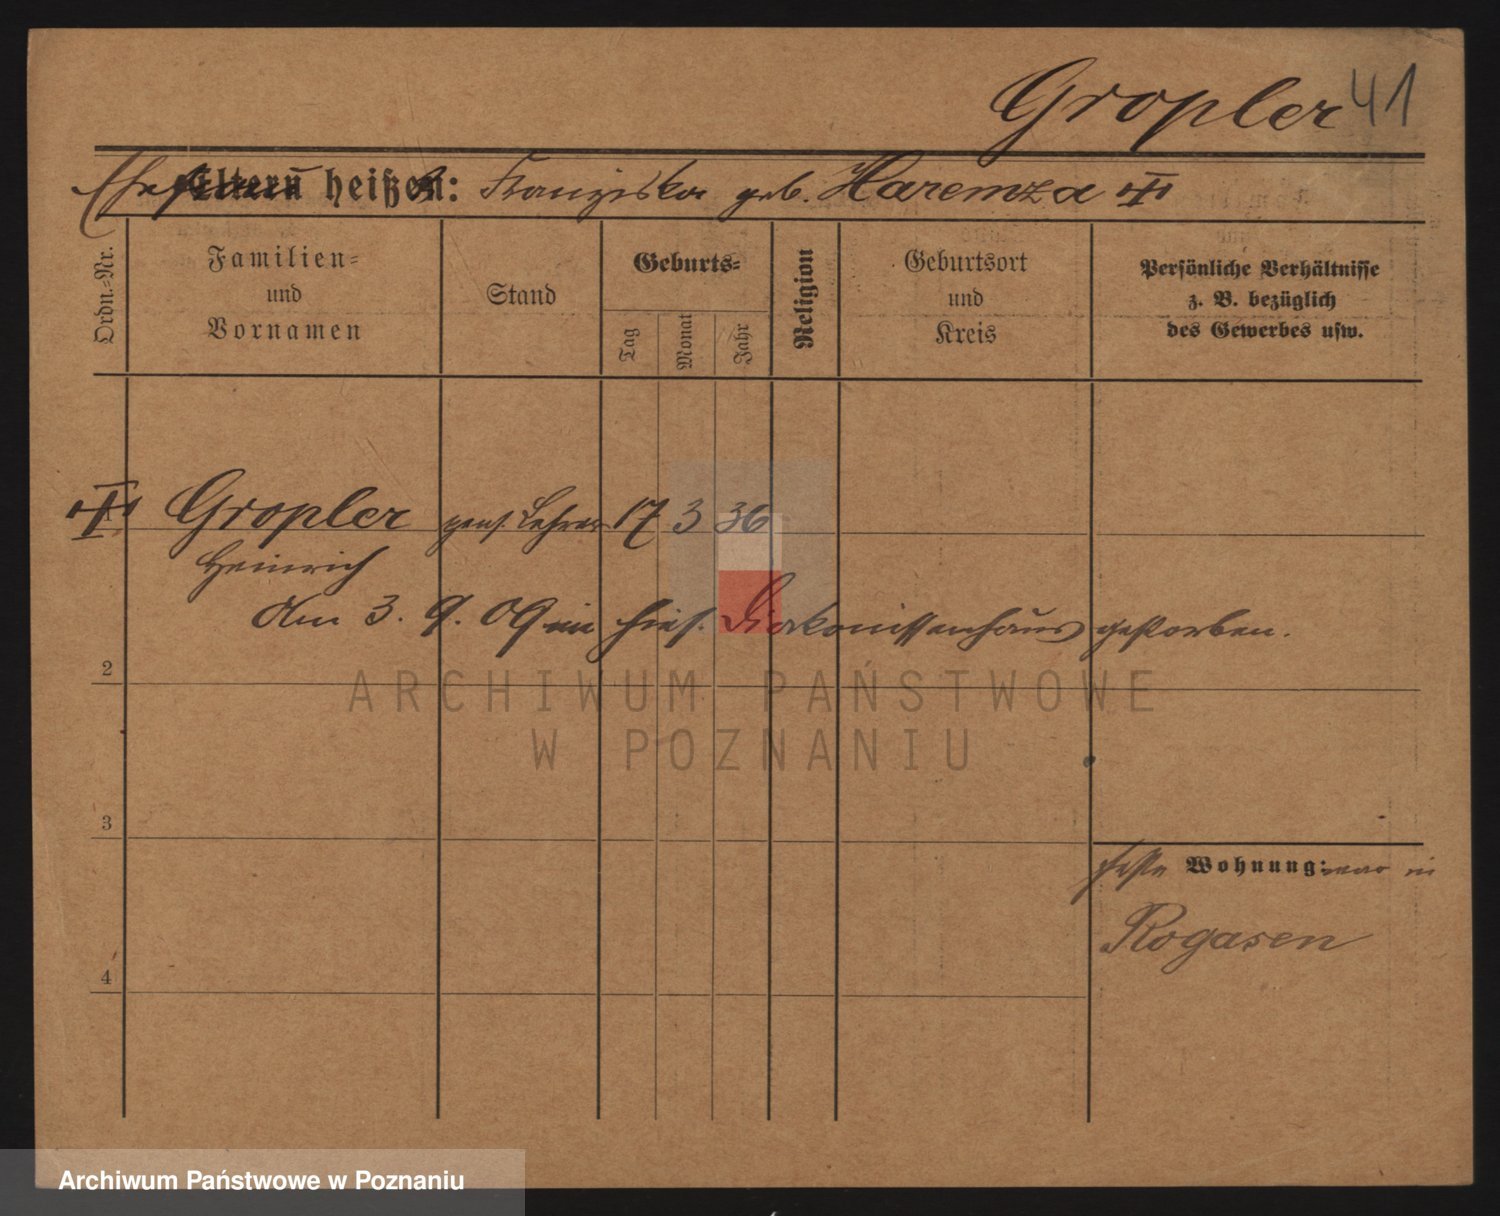 Gropler 41
Ehefrau heißt: Franziska geb. Haremza
Ordn.-Nr.
Familien-
und
Vornamen
Stand
Geburts-
Tag
Monat
Jahr
Religion
Geburtsort
und
Kreis
Persönliche Verhältnisse
z. B. bezüglich
des Gewerbes usw.
1 Gropler pens. Lehrer 17 3 36
Heinrich
Am 3. 9. 09 im hies. Diakonissenhaus gestorben.
2
ARCHIWUM PAŃSTWOWE
W POZNANIU
3
feste Wohnung: war in
Rogasen
4
Archiwum Państwowe w Poznaniu